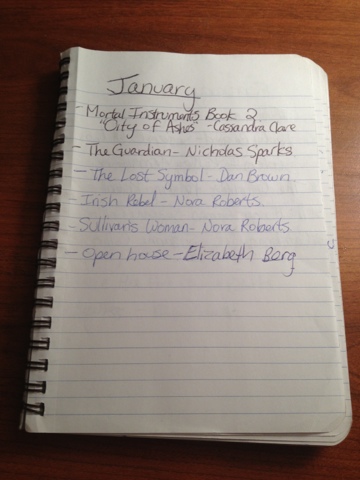 January
- Mortal Instruments Book 2
"City of Ashes" - Cassandra Clare
- The Guardian - Nicholas Sparks
- The Lost Symbol - Dan Brown
- Irish Rebel - Nora Roberts.
- Sullivan's Woman - Nora Roberts
- Open house - Elizabeth Berg